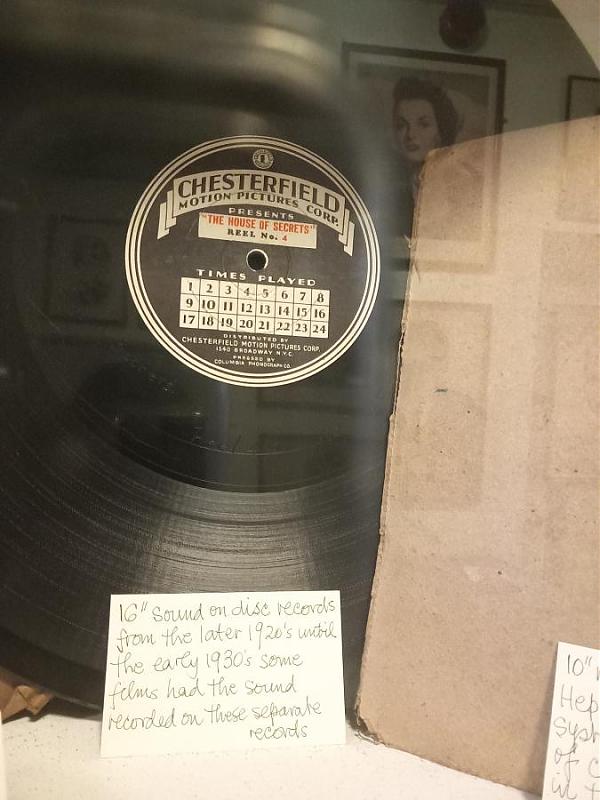 CHESTERFIELD
MOTION PICTURES CORP.
PRESENTS
"THE HOUSE OF SECRETS"
REEL No. 4
TIMES PLAYED
1 2 3 4 5 6 7 8
9 10 11 12 13 14 15 16
17 18 19 20 21 22 23 24
DISTRIBUTED BY
CHESTERFIELD MOTION PICTURES CORP.
1540 BROADWAY N.Y.C.
PRESSED BY
COLUMBIA PHONOGRAPH CO.
16" sound on disc records
from the later 1920's until
the early 1930's some
films had the sound
recorded on these separate
records
10"
Hep
Syst
of C
in t